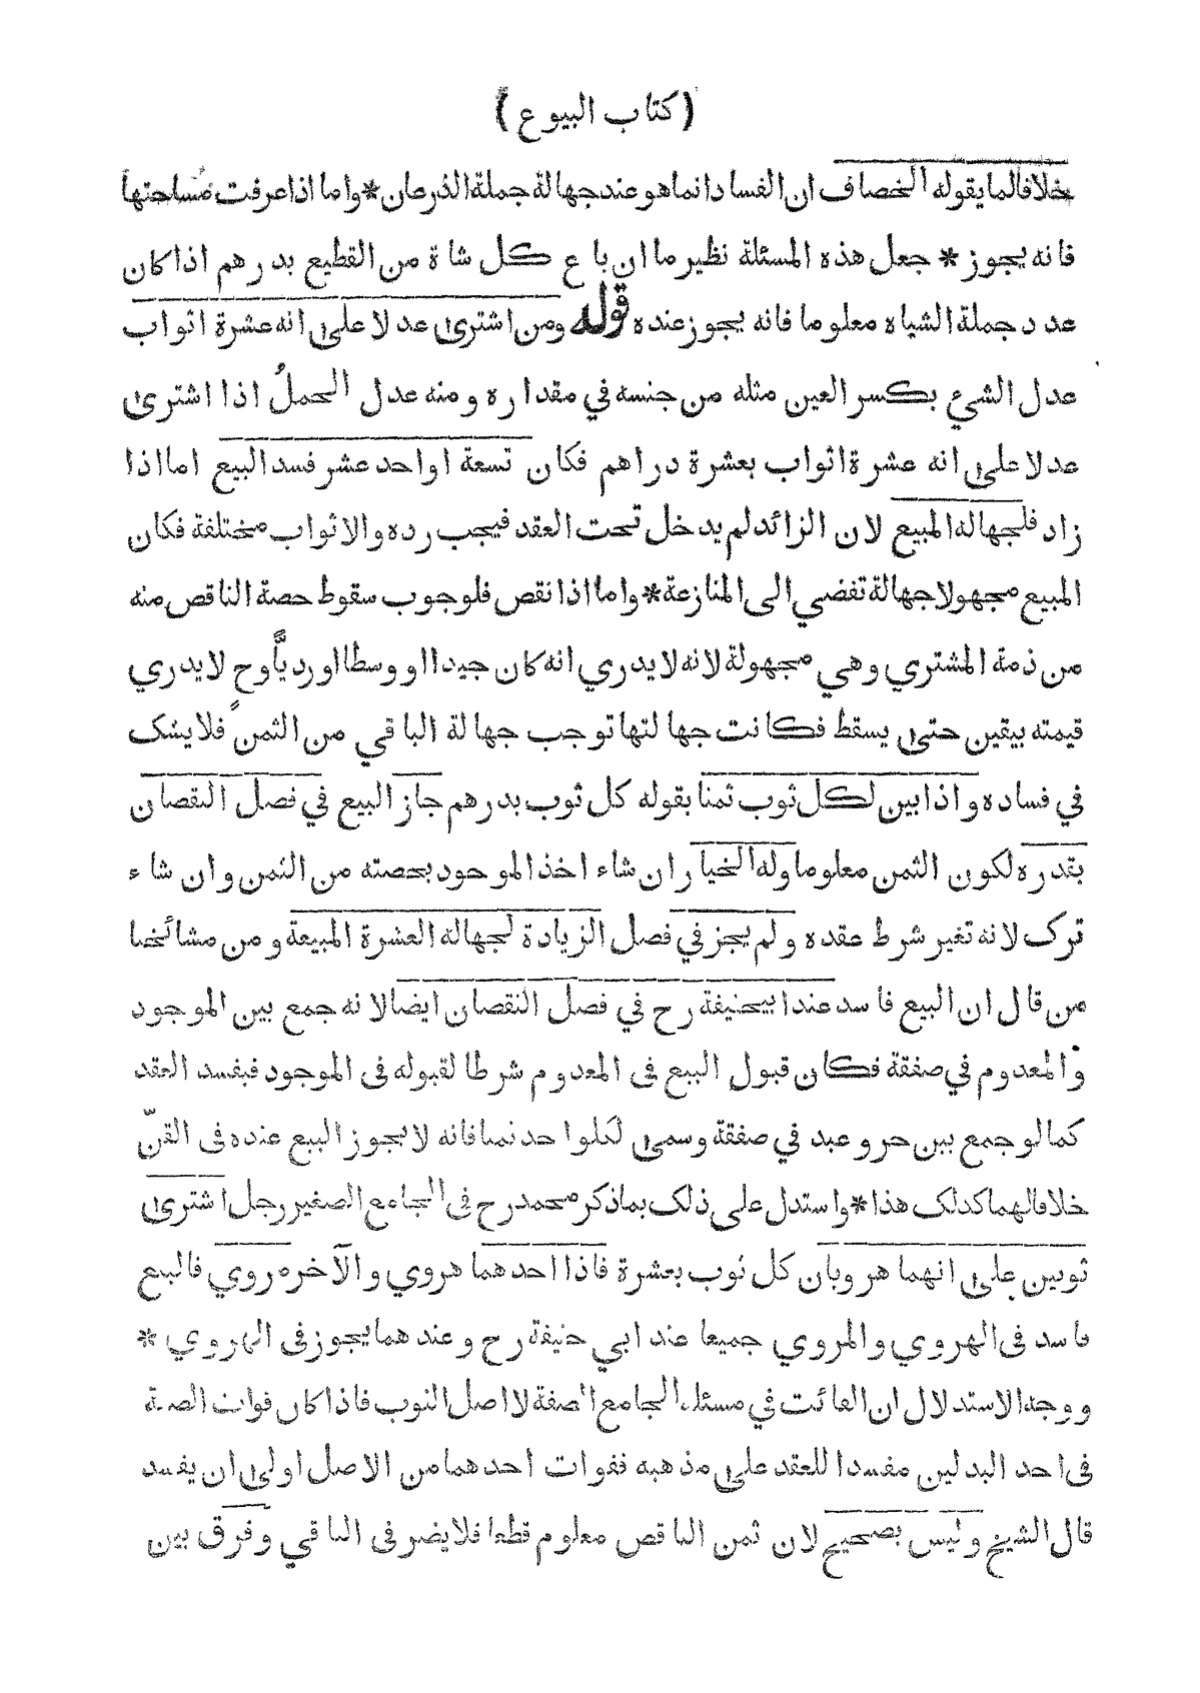 (كتاب البيوع)
خلافا لما يقوله الخصاف ان الفساد انما هو عند جهالة جملة الذرعان * واما اذا عرفت مساحتها
فانه يجوز * جعل هذه المسئلة نظير ما ان باع كل شاة من القطيع بدرهم اذا كان
عدد جملة الشياه معلوما فانه يجوز عنده قوله ومن اشترى عدلا على انه عشرة اثواب
عدل الشيء بكسر العين مثله من جنسه في مقداره ومنه عدل الحمل اذا اشترى
عدلا على انه عشرة اثواب بعشرة دراهم فكان تسعة او احد عشر فسد البيع اما اذا
زاد فلجهاله المبيع لان الزائد لم يدخل تحت العقد فيجب رده والاثواب مختلفة فكان
المبيع مجهولا جهالة تفضي الى المنازعة * واما اذا نقص فلوجوب سقوط حصة الناقص منه
من ذمة المشتري وهي مجهولة لانه لا يدري انه كان جيدا او وسطا او رديأ وح لا يدري
قيمته بيقين حتى يسقط فكانت جهالتها توجب جهالة الباقي من الثمن فلا يشك
في فساده واذا بين لكل ثوب ثمنا بقوله كل ثوب بدرهم جاز البيع في فصل النقصان
بقدره لكون الثمن معلوما وله الخيار ان شاء اخذ الموجود بحصته من الثمن وان شاء
ترك لانه تغير شرط عقده ولم يجز في فصل الزيادة لجهاله العشرة المبيعة ومن مشائخنا
من قال ان البيع فاسد عند ابيحنيفة رح في فصل النقصان ايضا لانه جمع بين الموجود
والمعدوم في صفقة فكان قبول البيع في المعدوم شرطا لقبوله في الموجود فيفسد العقد
كما لو جمع بين حر وعبد في صفقة وسمى لكلواحد ثمنا فانه لا يجوز البيع عنده في القنّ
خلافا لهما كذلك هذا * واستدل على ذلك بما ذكر محمد رح في الجامع الصغير رجل اشترى
ثوبين على انهما هرويان كل ثوب بعشرة فاذا احدهما هروي والآخر مروي فالبيع
فاسد في الهروي والمروي جميعا عند ابي حنيفة رح وعندهما يجوز في الهروي *
ووجه الاستدلال ان الفائت في مسئلة الجامع الصفة لا اصل الثوب فاذا كان فوات الصفة
في احد البدلين مفسدا للعقد على مذهبه ففوات احدهما من الاصل اولى ان يفسد
قال الشيخ وليس بصحيح لان ثمن الناقص معلوم قطعا فلا يضر في الباقي وفرق بين